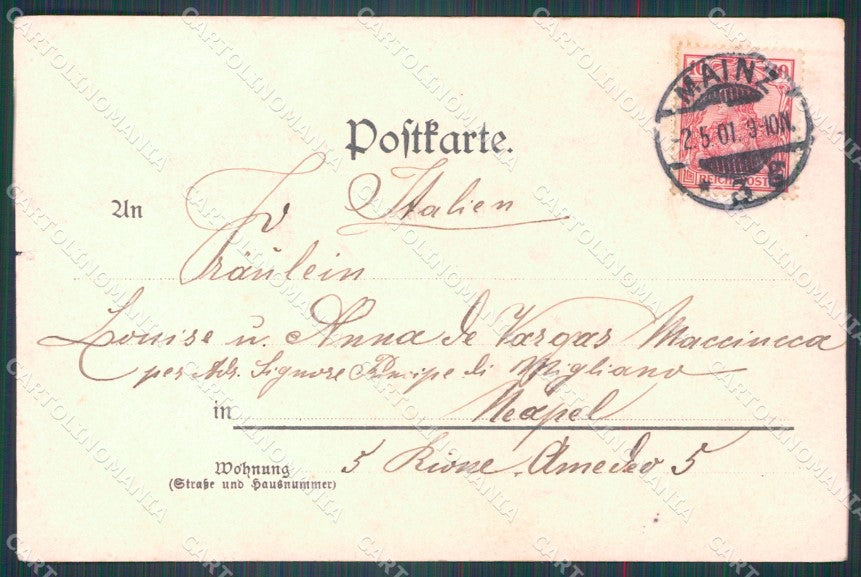 10 10
MAINZ
-2.5.01. 9-10N.
* 3 E
REICHSPOST
Postkarte.
Italien
An
Fräulein
Louise u. Anna de Vargas Macciucca
per Adr. Signore Principe di Migliano
in Neapel
Wohnung
(Straße und Hausnummer)
5 Rione Amedeo 5
CARTOLINOMANIA